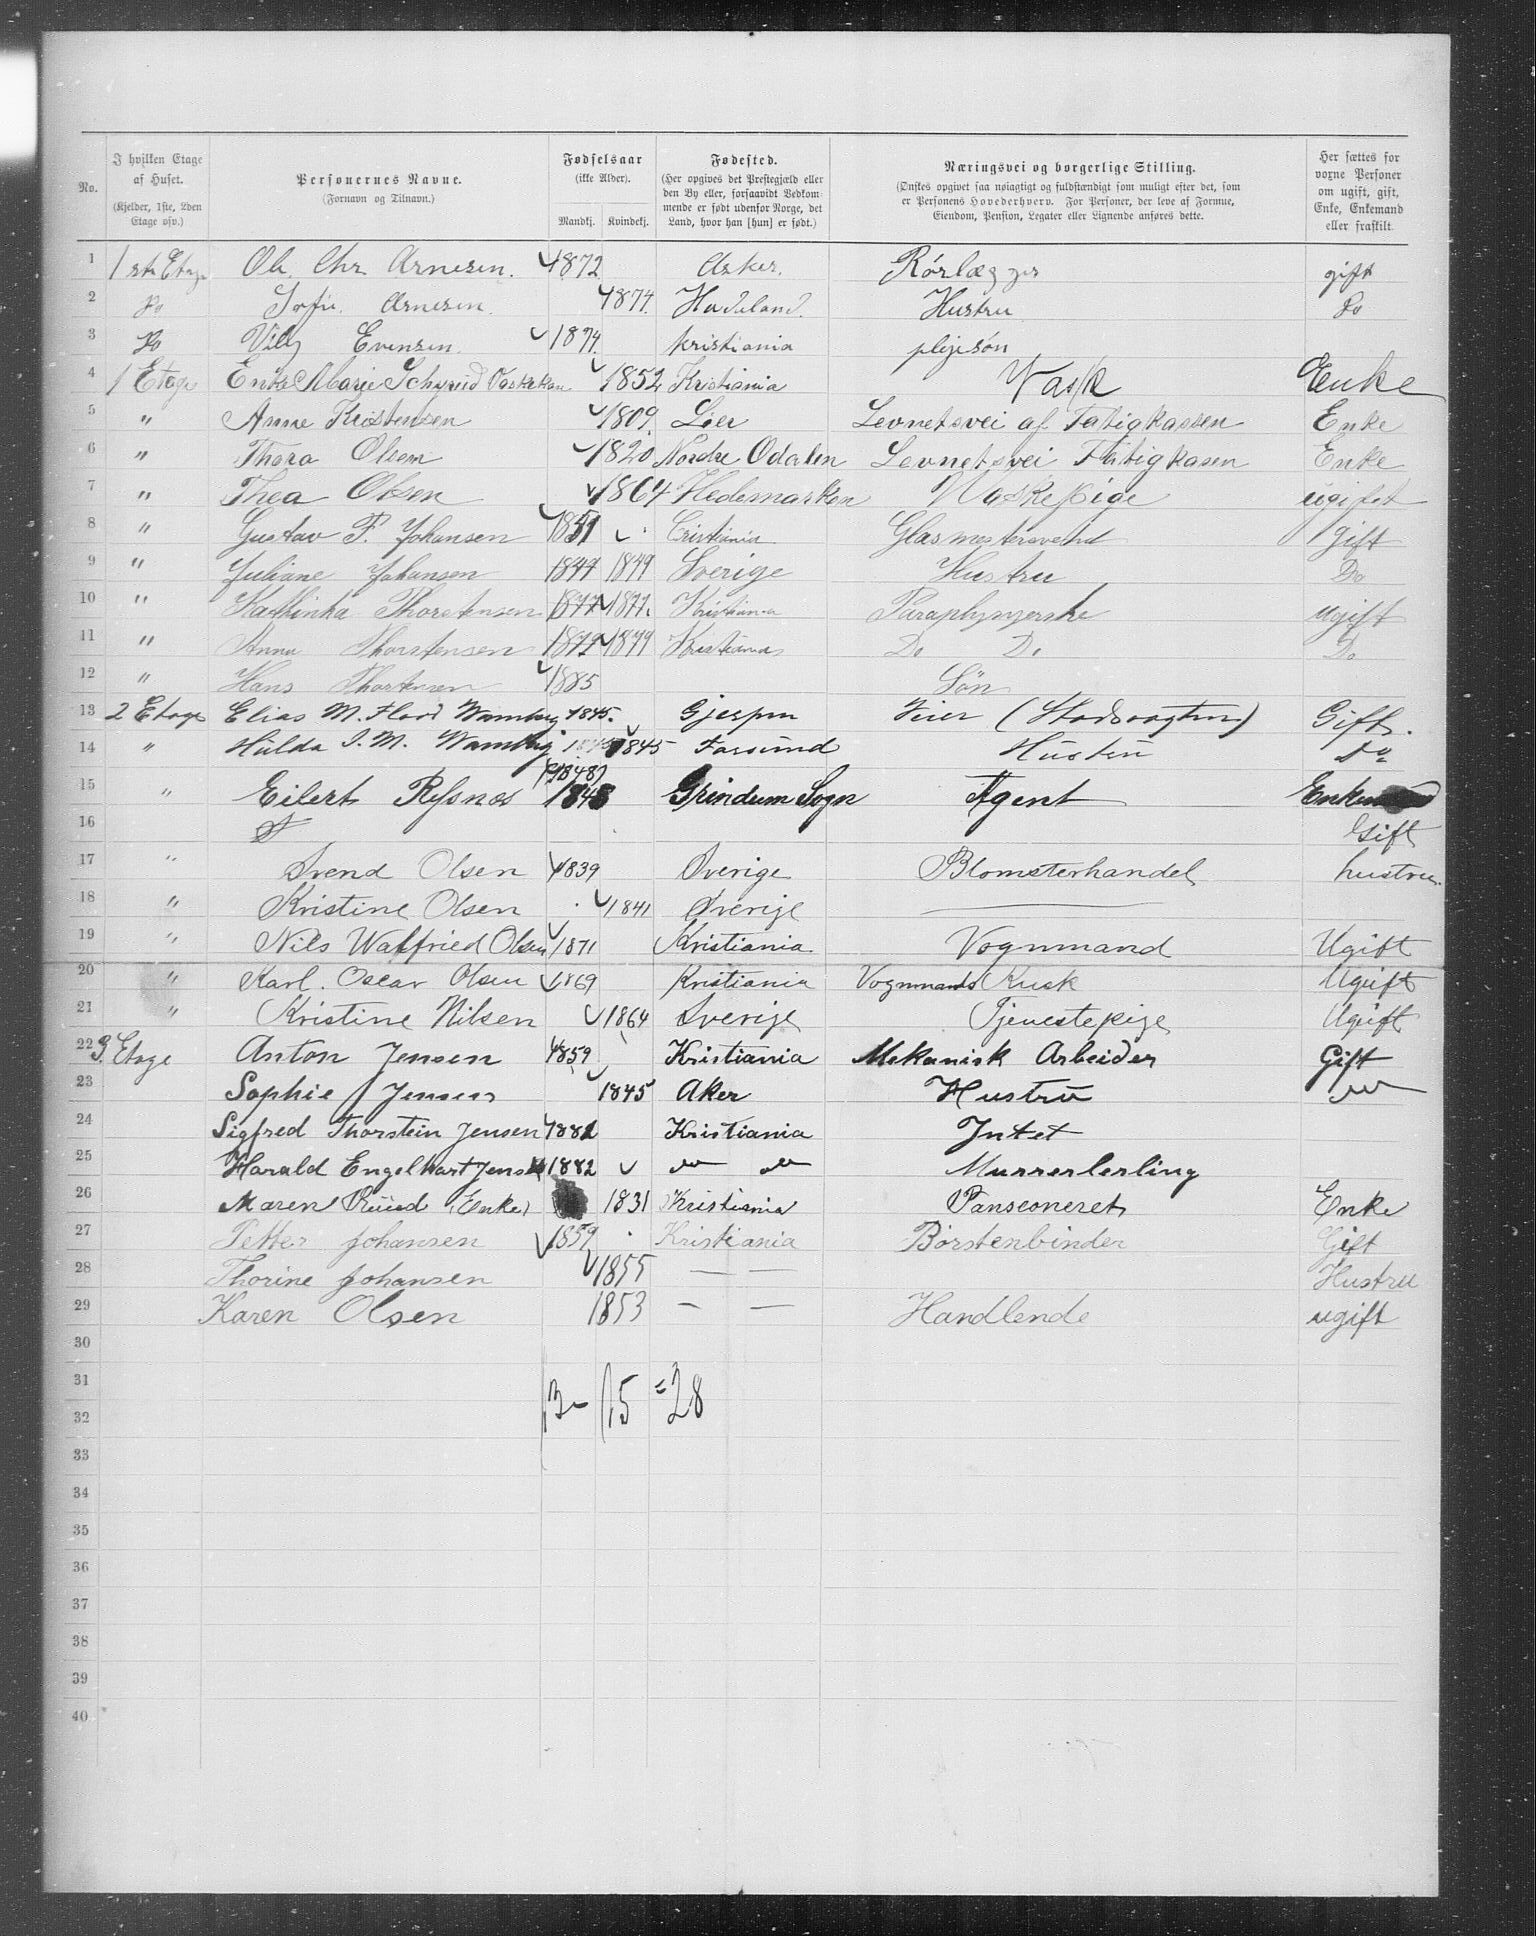 No.
I hvilken Etage af Huset.
(Kjelder, 1ste, 2den Etage osv.)
Personernes Navne.
(Fornavn og Tilnavn.)
Fødselsaar
(ikke Alder).
Mandkj. Kvindekj.
Fødested.
(Her opgives det Prestegjæld eller den By eller, forsaavidt Vedkommende er født udenfor Norge, det Land, hvor han [hun] er født.)
Næringsvei og borgerlige Stilling.
(Ønskes opgivet saa nøiagtigt og fuldstændigt som muligt efter det, som er Personens Hovederhverv. For Personer, der leve af Formue, Eiendom, Pension, Legater eller Lignende anføres dette.
Her sættes for voxne Personer om ugift, gift, Enke, Enkemand eller fraskilt.
1 1ste Etage Ole Chr Arnesen. 1872 Asker. Rörlægger gift
2 Do Sofie Arnesen. 1874. Hadeland. Hustru Do
3 Do Villy Evensen. 1874. Kristiania plejesøn
4 1 Etage Enke Marie Schmid 1852 Kristiania Vask Enke
5 " Anne Kristensen 1809. Lier Levnetsvei af Fatigkassen Enke
6 " Thora Olsen 1820 Nordre Odalen Levnetsvei Fatigkasen Enke
7 " Thea Olsen 1864 Hedemarken Vaskepige ugifet
8 " Gustav F. Johansen 1851 Cristiania Glasmestersvend gift
9 " Juliane Johansen 1849 1849 Sverige Hustru Do
10 " Kathinka Thorstensen 1877 1877. Kristiania Paraplysyerske ugift
11 " Anna Thorstensen 1879 1879 Kristiania Do Do Do
12 " Hans Thorstensen 1885 Sön
13 2 Etage Elias M. Flod Wamberg 1845. Gjerpen Feier (Stadsvagten) Gift.
14 " Hilda I. M. Wamberg 1845 Farsund Hustru Do
(1848)
15 " Eilert Rysnes 1848 Grindum Sogn Agent
16 Gift
17 " Svend Olsen 1839 Sverige Blomsterhandel hustru.
18 " Kristine Olsen 1841 Sverige
19 " Nils Walfried Olsen 1871 Kristiania Vognmand Ugift
20 " Karl. Oscar Olsen 1869 Kristiania Vognmands Kusk Ugift
21 " Kristine Nilsen 1864 Sverige Tjenestepige Ugift
22 3 Etage Anton Jensen 1859 Kristiania Mekanisk Arbeider Gift
23 Sophie Jensen 1845 Aker Hustru
24 Sigfred Thorstein Jensen 1881 Kristiania Intet
25 Harald Engelhart Jensen 1882 Murrerlerling
26 Maren Ruud (Enke) 1831 Kristiania Panseoneret Enke
27 Petter Johansen 1859 Kristiania Börstenbinder Gift
28 Thorine Johansen 1855 — — Hustru
29 Karen Olsen 1853 — — Handlende ugift
30
31
13 - 15 = 28
32
33
34
35
36
37
38
39
40